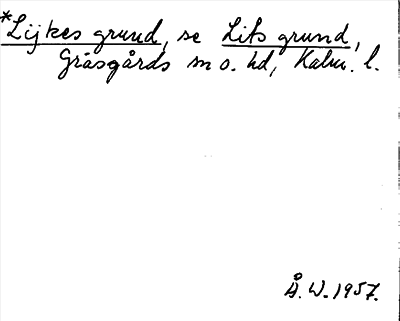 *Lijkes grund, se Lits grund,
Gräsgårds sn o. hd, Kalm. l.
Å. W. 1957.